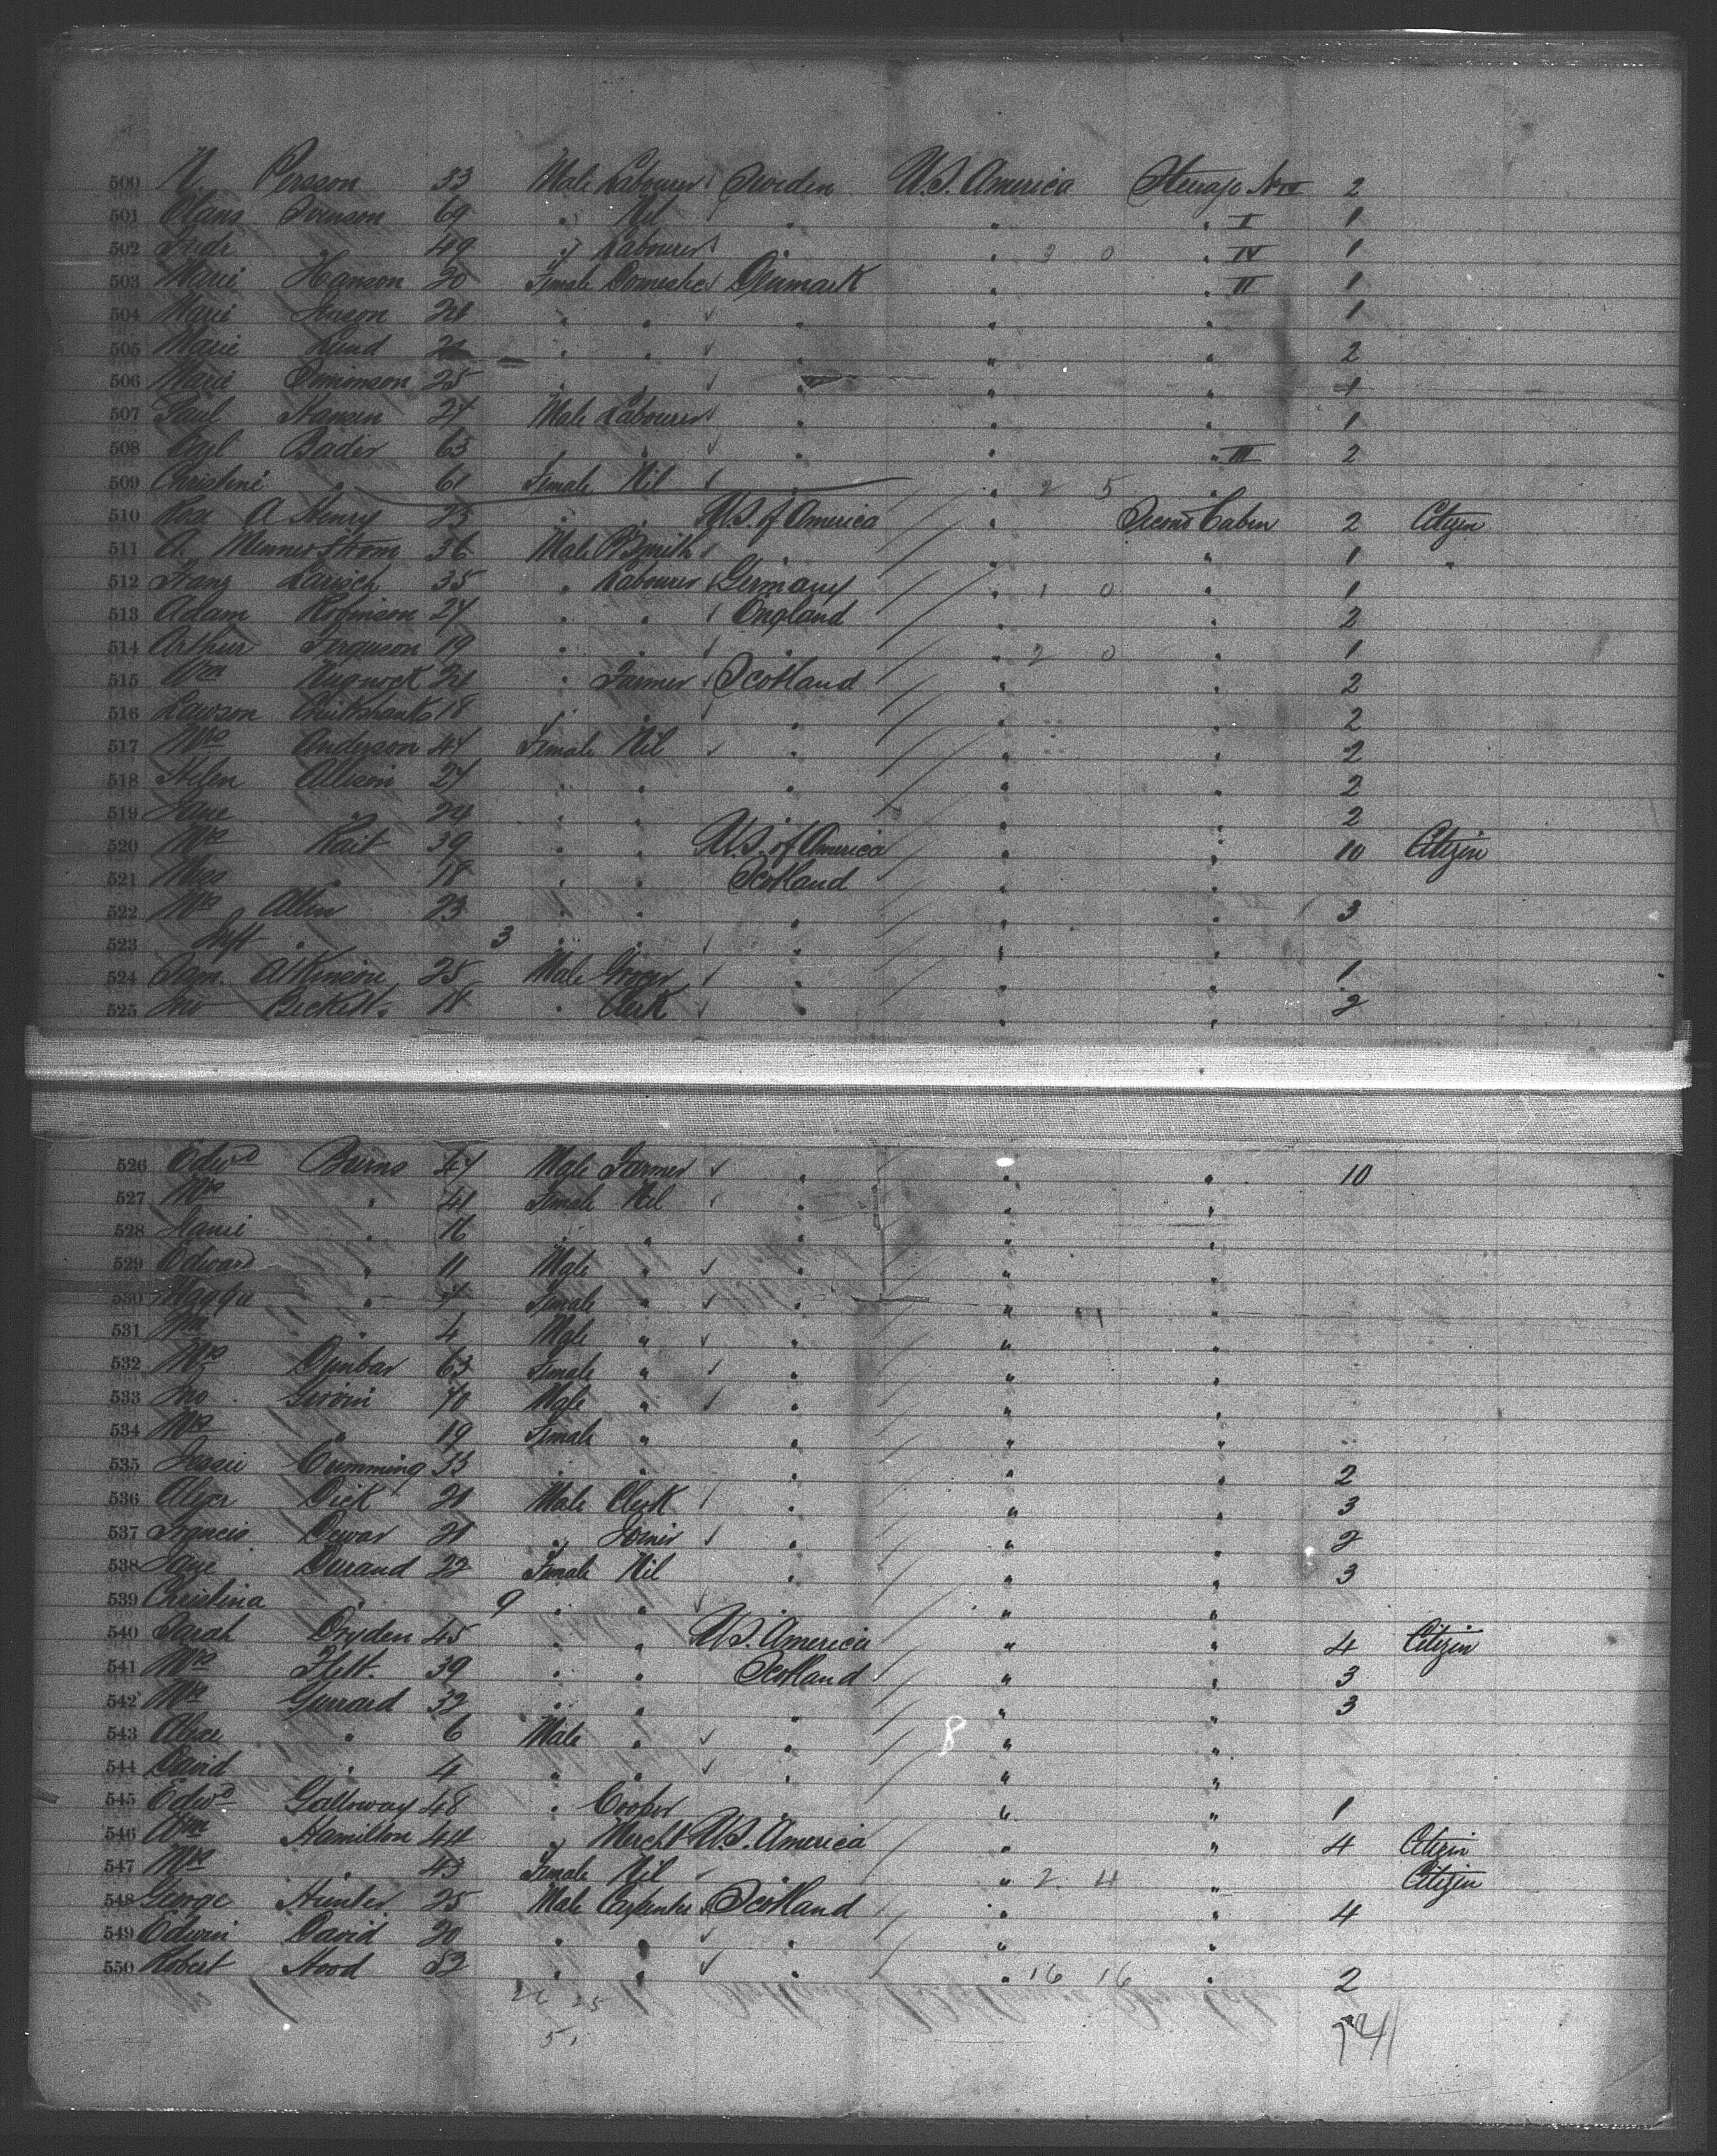 500 N. Persson 33 Male Labourer Sweden U.S. America Steerage No 2
501 Svenson 69 " Nil " " " I 1
502 49 " Labourer " 2 0 " IV 1
503 Marie Hanson 20 Female Domestic Denmark " " II 1
504 Marie 24 " " " " " 1
505 Marie Lund " " " " " 2
506 Marie Simonson 25 " " " " 1
507 Paul Hansen 27 Male Labourer " " " 1
508 Bader 63 " " " " " III 2
509 Christine " 61 Female Nil " " 2 5 "
510 A Henry 23 " " U.S. of America " Second Cabin 2 Citizen
511 A. 36 Male B Smith " " 1 "
512 Franz Larisch 35 " Labourer Germany " 1 0 " 1
513 Adam Robinson 27 " " England " " 2
514 Arthur Ferguson 19 " " " 2 0 " 1
515 Wm " Farmer Scotland " " 2
516 Lawson Cruikshank 18 " " " " " 2
517 Mrs Anderson 47 Female Nil " " " 2
518 Helen Allison 27 " " " " " 2
519 Jane " 24 " " " " " 2
520 Mrs Tait 39 " " U.S. of America " " 10 Citizen
521 Miss " 18 " " Scotland " "
522 Mrs Allen 23 " " " " " 3
523 Inft " 3 " " " " "
524 Sam. Atkinson 25 Male Grocer " " " 1
525 Jno Beckett. 18 " Clerk " " " 2
526 Edwd Burns 47 Male Farmer " " " 10
527 Mrs " 41 Female Nil " " "
528 " 16 " " " " "
529 Edward " 11 Male " " " "
530 Maggie " 7 Female " " " 11 "
531 Wm " 4 Male " " " "
532 Mrs Dunbar 63 Female " " " "
533 Jno Girvin 70 Male " " " "
534 Mrs " 19 Female " " " "
535 Jessie Cumming 33 " " " " " 2
536 Alexr Dick 21 Male Clerk " " " 3
537 Francis Dewar 21 " Joiner " " " 2
538 Jane Durand 22 Female Nil " " " 3
539 Christina " 9 " " " " "
540 Sarah Dryden 45 " " U.S. America " " 4 Citizen
541 Mrs Flett. 39 " " Scotland " " 3
542 Mrs Gerrard 32 " " " " " 3
543 Alexr " 6 Male " " 8 " "
544 David " 4 " " " " "
545 Edwd Galloway 48 " Cooper " " " 1
546 Wm Hamilton 44 " Mercht U.S. America " " 4 Citizen
547 Mrs " 43 Female Nil " " 2 4 " Citizen
548 George Hunter 25 Male Carpenter Scotland " " 4
549 Edwin David 20 " " " " "
550 Robert Hood 52 " " " " 16 16 " 2
26 25
51